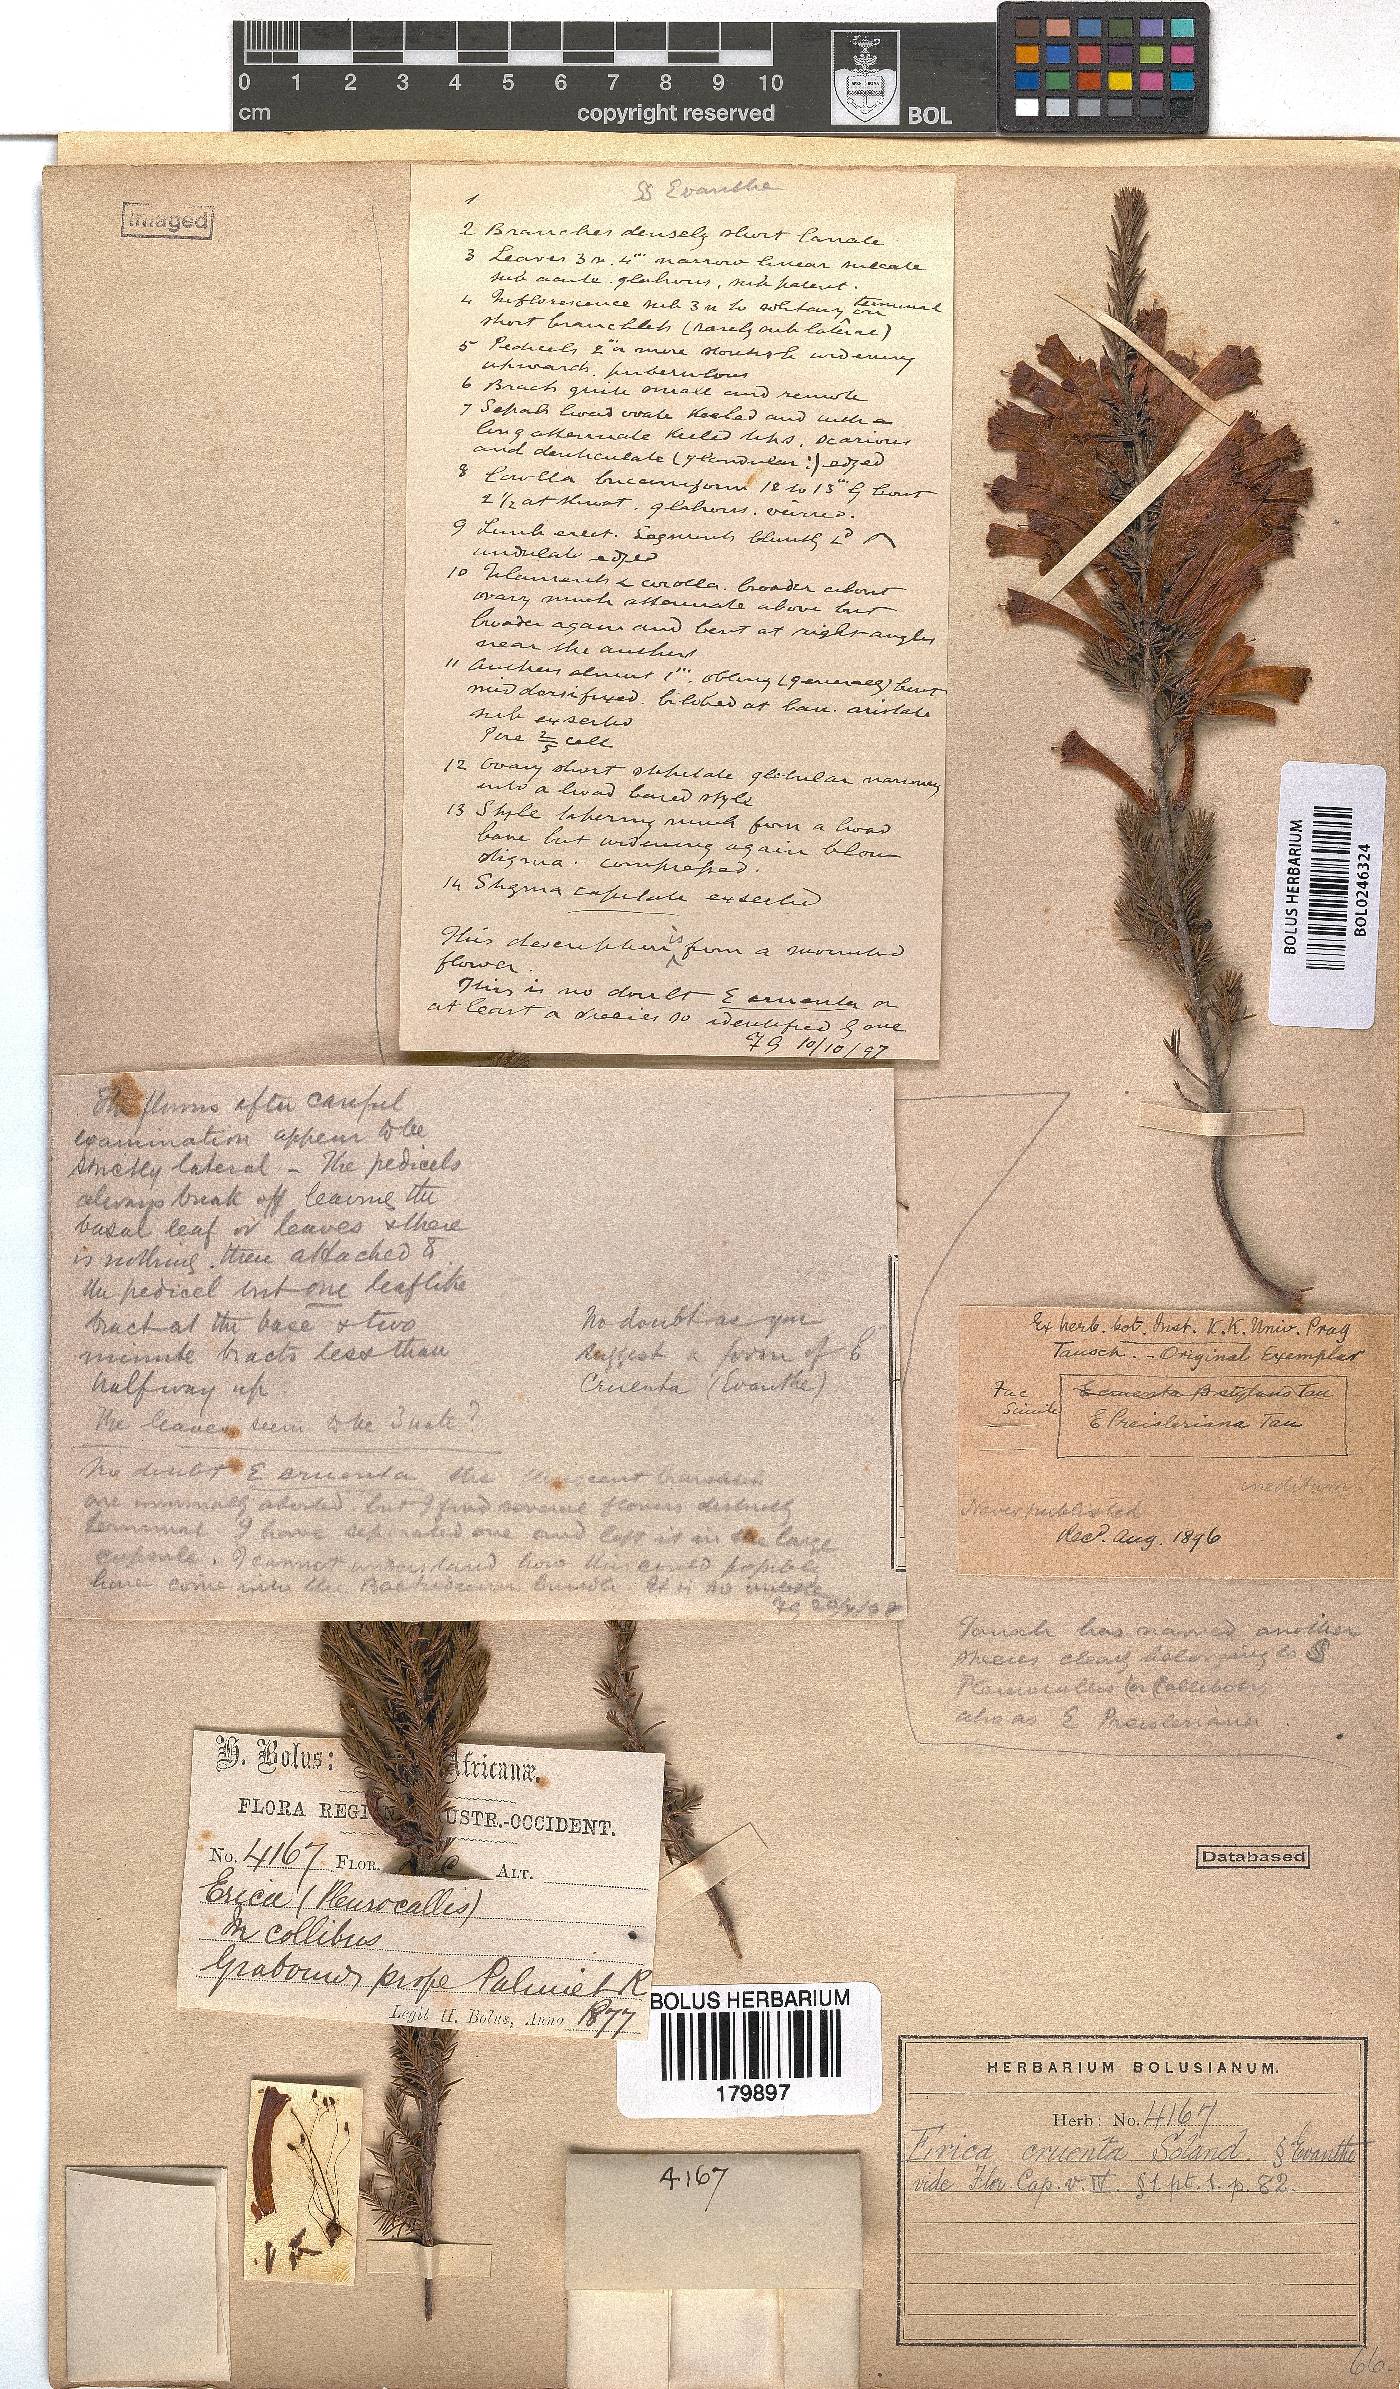 0 1 2 3 4 5 6 7 8 9 10
cm copyright reserved BOL
imaged
§ Evanthe
1
2 Branches densely short lanate
3 Leaves 3 n. 4''' narrow linear sulcate
sub acute. glabrous, sub patent.
4 Inflorescence sub 3 n to solitary terminal on
short branchlets (rarely sub lateral)
5 Pedicels 2''' or more widening
upwards. puberulous
6 Bracts quite small and remote
7 Sepals broad ovate keeled and with a
long attenuate keeled tips, scarious
and denticulate (glandular?) edged
8 Corolla 12 to 13''' by bout
2 1/2 at throat. glabrous.
9 Limb erect. Segments bluntly
undulate edged
10 Filaments corolla. broader about
ovary much attenuate above but
broader again and bent at right angles
near the anthers
11 Anthers almost 1''', oblong (generally) bent
mid dorsifixed. bilobed at base. aristate
sub exserted
Pore 2/5 cell
12 Ovary short stipitate globular narrowing
into a broad based style
13 Style tapering much from a broad
base but widening again below
stigma. compressed.
14 Stigma capitate exserted
This description is from a mounted
flower.
This is no doubt E cruenta or
at least a species so identified by one
FG 10/10/97
The flowers after careful
examination appear to be
strictly lateral – The pedicels
always break off leaving the
basal leaf or leaves & there
is nothing then attached to
the pedicel but one leaflike
bract at the base & two
minute bracts less than
halfway up.
The leaves seem to be 3nate?
No doubt as you
suggest a form of E
Cruenta (Evanthe)
No doubt E cruenta the branchlets
are normally aborted. but I find several flowers distinctly
terminal I have separated one and left it in the large
capsule. I cannot understand how this could possibly
have come into the bundle. It is no
FG
Ex herb. bot. Inst. K.K. Univ. Prag
Tausch. – Original Exemplar
Fac
Simile
E cruenta β stylosis Tau
E Preisleriana Tau
ineditum
Never published
Recd. Aug. 1896
Tausch has named another
species clearly belonging to §
Pleurocallis (or Callibotrys)
also as E Preisleriana.
H. Bolus: Africanæ.
FLORA REGI AUSTR.-OCCIDENT.
No. 4167 FLOR. ALT.
Erica (Pleurocallis)
In collibus
Grabouw prope Palmiet R
Legit H. Bolus, Anno 1877
BOLUS HERBARIUM
179897
BOLUS HERBARIUM
BOL0246324
Databased
4167
HERBARIUM BOLUSIANUM.
Herb: No. 4167
Erica cruenta Soland. § Evanthe
vide Flor Cap. v. IV. §1. pt. 1. p. 82.
66.